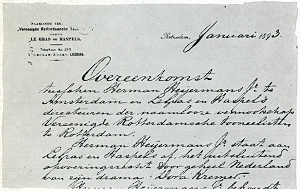 Vereenigde Rotterdamsche
LE GRAS en HASPELS.
Rotterdam, Januari 1893.
Overeenkomst
tusschen Herman Heijermans Jr. te
Amsterdam en LeGras en Haspels
directeuren der naamlooze vennootschap
Vereenigde Rotterdamsche Tooneelisten
te Rotterdam.
Herman Heijermans Jr. staat aan
LeGras en Haspels af, het uitsluitend
opvoeringsrecht voor geheel Nederland
van zijn drama: "Dora Kremer"